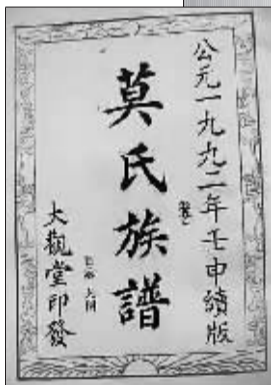 公元一九九二年壬申續版
莫氏族譜
大觀堂印發